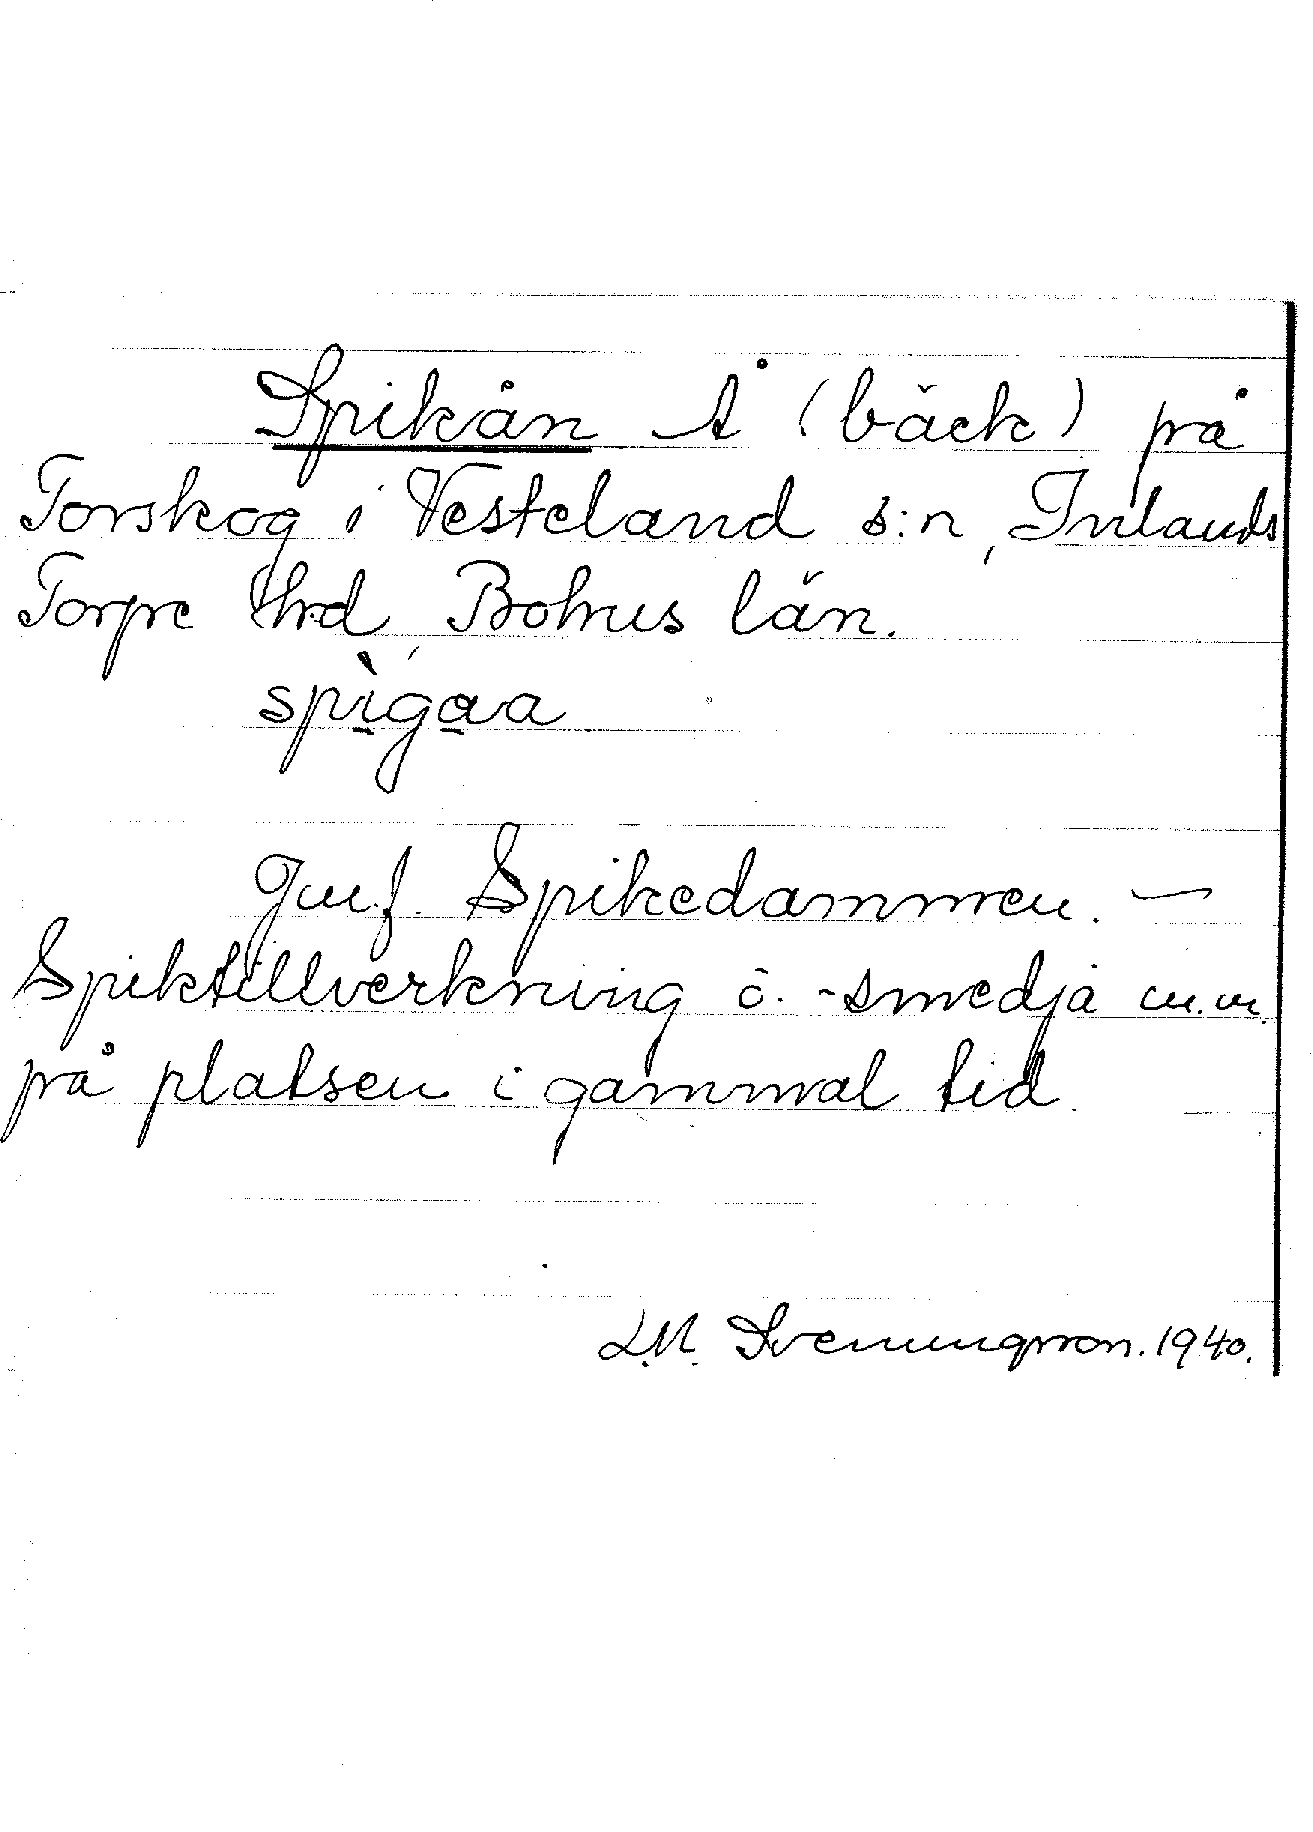 Spikån Å (bäck) på
Torskog i Vesteland s:n, Inlands
Torpe hrd, Bohus län.
spìgaa
Jmf. Spikedammen. —
Spiktillverkning o. -smedja m.m.
på platsen i gammal tid.
L.M. Svenungsson. 1940.